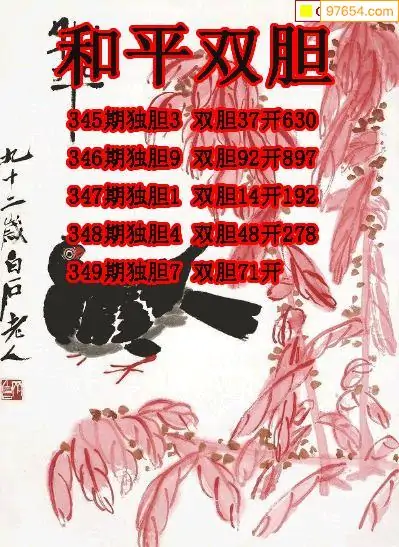 97654.com
和平双胆
345期独胆3 双胆37开630
346期独胆9 双胆92开897
347期独胆1 双胆14开192
348期独胆4 双胆48开278
349期独胆7 双胆71开
九十二岁白石老人